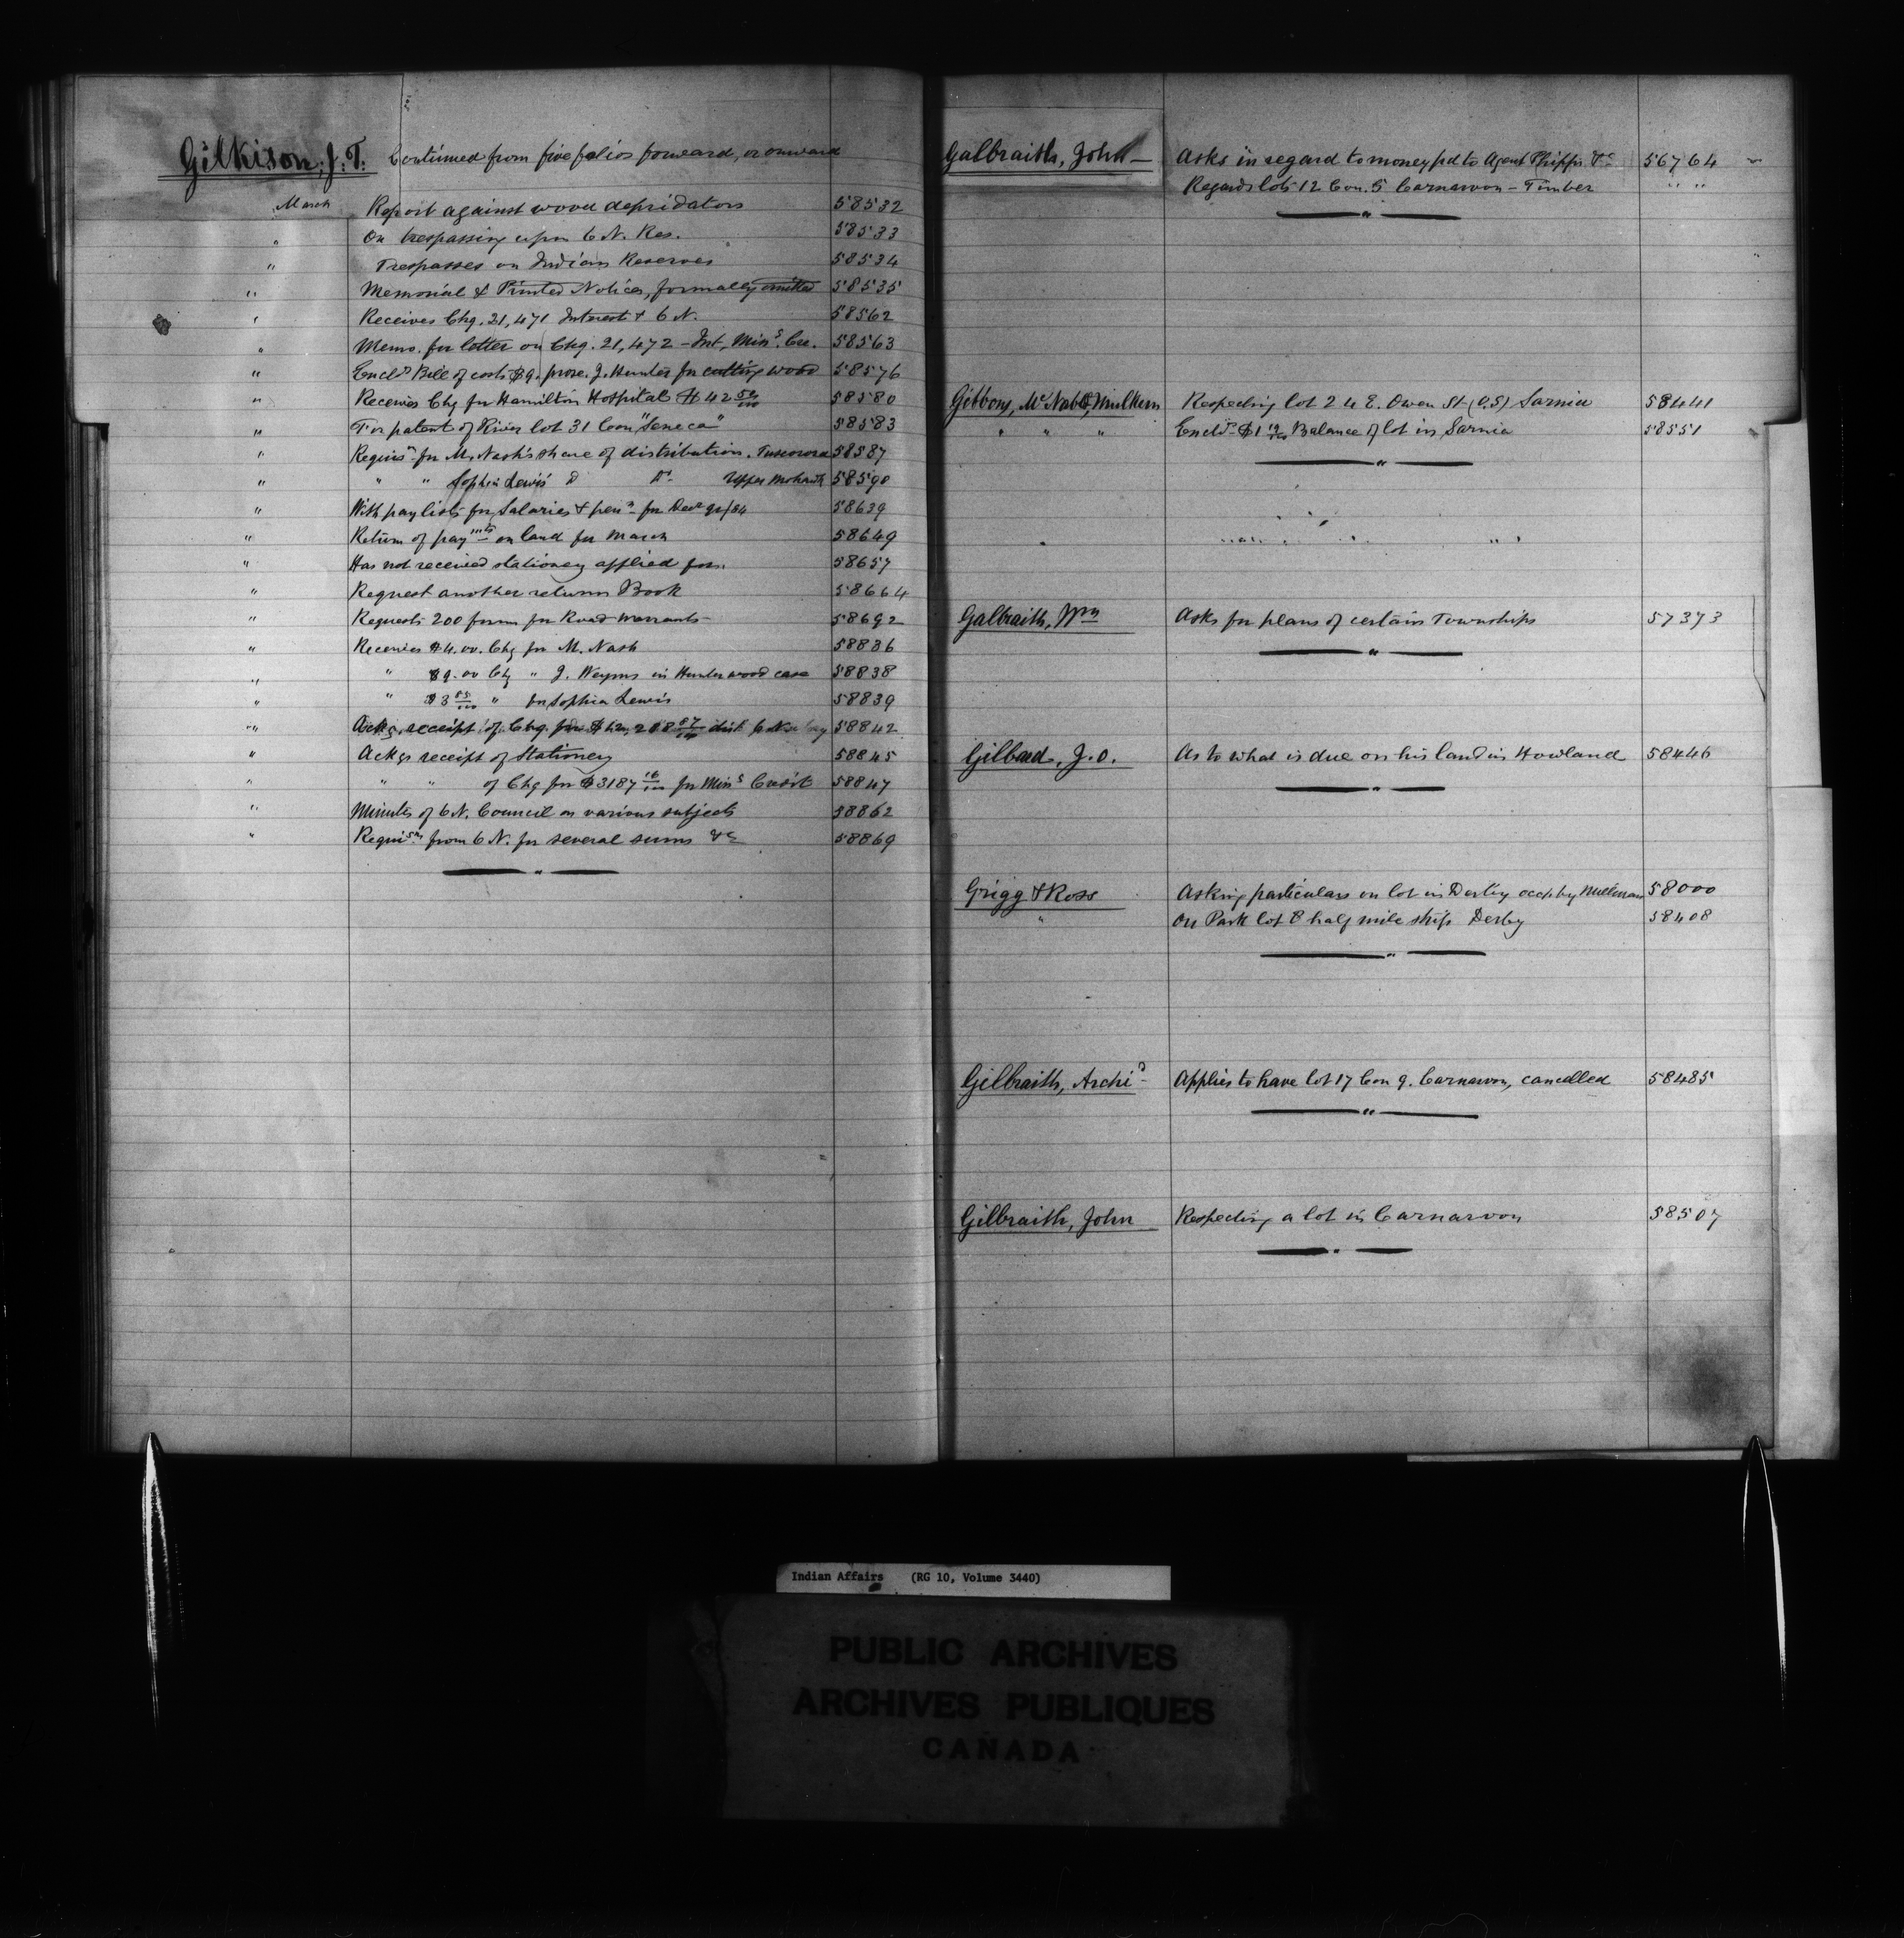 Gilkison, J. T. Continued from five folios forward, or onward
March Report against wood depridators 58532
" On trespassing upon 6 N. Res. 58533
" Trespasses on Indian Reserves 58534
" Memorial & Printed Notices, formally omitted 58535
" Receives Chq. 21,471 Interest 6 N. 58562
" Memo. for letter on Chq. 21,472 - Int, Mins. Cre. 58563
" Encls Bill of costs $9. prose. J. Hunter for cutting wood 58576
" Receives Chq for Hamilton Hospital $42 50/100 58580
" For patent of River lot 31 Con "Seneca" 58583
" Requisn for M. Nash's share of distribution. Tuscorora 58587
" " " Sophia Lewis' Do Upper Mohawk 58590
" With pay lists for Salaries & pens for Decr qr/84 58639
" Return of paymts on land for March 58649
" Has not received stationery applied for. 58657
" Request another return Book 58664
" Requests 200 forms for Road warrants 58692
" Receives $4.00. Chq for M. Nash 58836
" " $9.00 Chq " J. Weyms in Hunter wood case 58838
" " $3 85/100 " for Sophia Lewis 58839
" Ackgs receipt of Chq. for dist 6 N. 58842
" Ackgs receipt of Stationery 58845
" " " of Chq for $3187 16/100 for Mins Credit 58847
" Minutes of 6 N. Council on various subjects 58862
" Requisns from 6 N. for several sums &c 58869
Galbraith, John - Asks in regard to money pd to Agent Phipps &c 56764
Regards lots 12 Con. 5 Carnarvon - Timber " "
Gibbons, McNabb & Mulkern Respecting lot 24 E. Owen St (O.S) Sarnia 58441
" " " Encls $1 19/100 Balance of lot in Sarnia 58551
Galbraith, Wm Asks for plans of certain Townships 57373
Gilbead, J. O. As to what is due on his land in Howland 58446
Grigg & Ross Asking particulars on lot in Derby occp by Millman 58000
" On Park lot 8 half mile strip Derby 58408
Gilbraith, Archid Applies to have lot 17 Con 9. Carnarvon, cancelled 58485
Gilbraith, John Respecting a lot in Carnarvon 58507
Indian Affairs (RG 10, Volume 3440)
PUBLIC ARCHIVES
ARCHIVES PUBLIQUES
CANADA